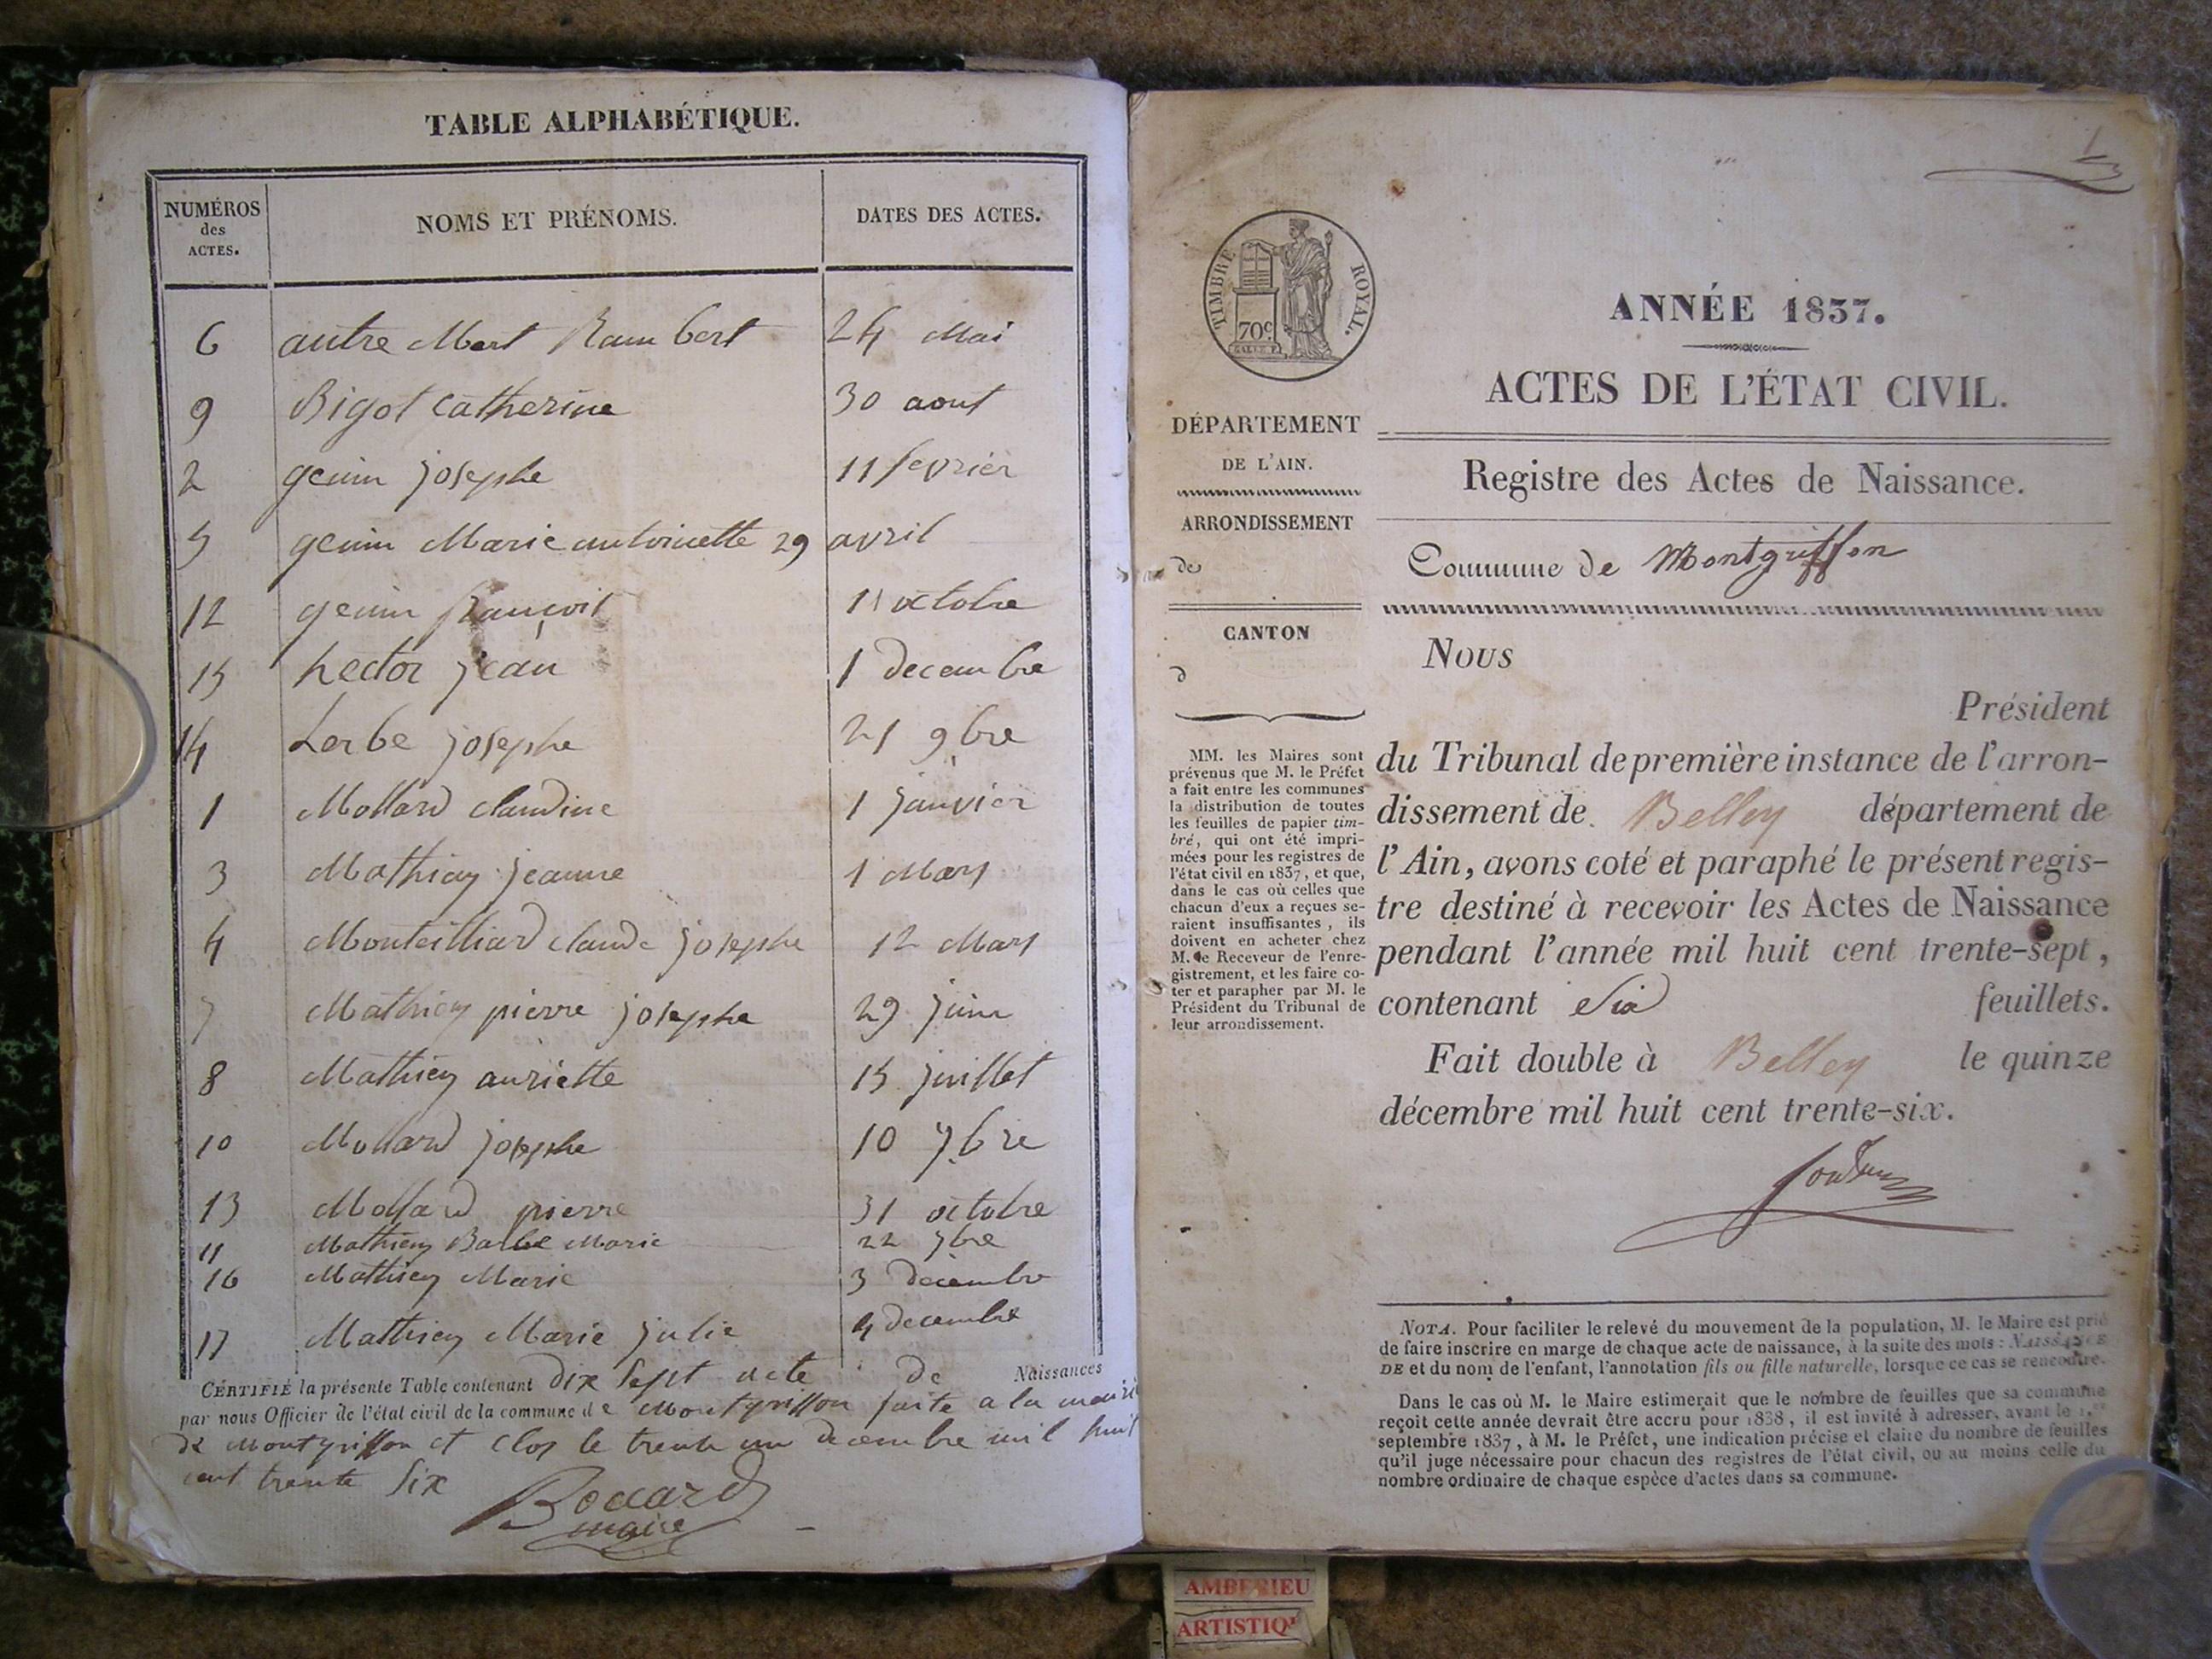 TABLE ALPHABÉTIQUE.
NUMÉROS des ACTES. NOMS ET PRÉNOMS. DATES DES ACTES.
6 autre Mert Rambert 24 Mai
9 Bigot Catherine 30 aout
2 genin josephe 11 fevrier
5 genin Marie antoinette 29 avril
12 genin françois 11 octobre
15 hector jean 1 decembre
14 Lorbe josephe 21 9bre
1 Mollard claudine 1 janvier
3 Mathieu jeanne 1 Mars
4 Monteilliard claude josephe 12 Mars
7 Mathieu pierre josephe 29 juin
8 Mathieu auriette 15 juillet
10 Mollard josephe 10 7bre
13 Mollard pierre 31 octobre
11 Mathieu Barbe Marie 22 7bre
16 Mathieu Marie 3 decembre
17 Mathieu Marie julie 4 decembre
CERTIFIÉ la présente Table contenant dix sept acte de Naissances
par nous Officier de l'état civil de la commune de Montgriffon faite a la mairie
de Montgriffon et clos le trente un decembre mil huit
cent trente six
Bocard
maire
1
TIMBRE ROYAL.
70c
ANNÉE 1837.
ACTES DE L'ÉTAT CIVIL.
DÉPARTEMENT
DE L'AIN.
ARRONDISSEMENT
de
CANTON
d
MM. les Maires sont
prévenus que M. le Préfet
a fait entre les communes
la distribution de toutes
les feuilles de papier tim-
bré, qui ont été impri-
mées pour les registres de
l'état civil en 1837, et que,
dans le cas où celles que
chacun d'eux a reçues se-
raient insuffisantes, ils
doivent en acheter chez
M. le Receveur de l'enre-
gistrement, et les faire co-
ter et parapher par M. le
Président du Tribunal de
leur arrondissement.
Registre des Actes de Naissance.
Commune de Montgriffon
Nous
Président
du Tribunal de première instance de l'arron-
dissement de Belley département de
l'Ain, avons coté et paraphé le présent regis-
tre destiné à recevoir les Actes de Naissance
pendant l'année mil huit cent trente-sept,
contenant Six feuillets.
Fait double à Belley le quinze
décembre mil huit cent trente-six.
NOTA. Pour faciliter le relevé du mouvement de la population, M. le Maire est prié
de faire inscrire en marge de chaque acte de naissance, à la suite des mots : NAISSANCE
DE et du nom de l'enfant, l'annotation fils ou fille naturelle, lorsque ce cas se rencontre.
Dans le cas où M. le Maire estimerait que le nombre de feuilles que sa commune
reçoit cette année devrait être accru pour 1838, il est invité à adresser, avant le 1.er
septembre 1837, à M. le Préfet, une indication précise et claire du nombre de feuilles
qu'il juge nécessaire pour chacun des registres de l'état civil, ou au moins celle du
nombre ordinaire de chaque espèce d'actes dans sa commune.
AMBERIEU
ARTISTIQ